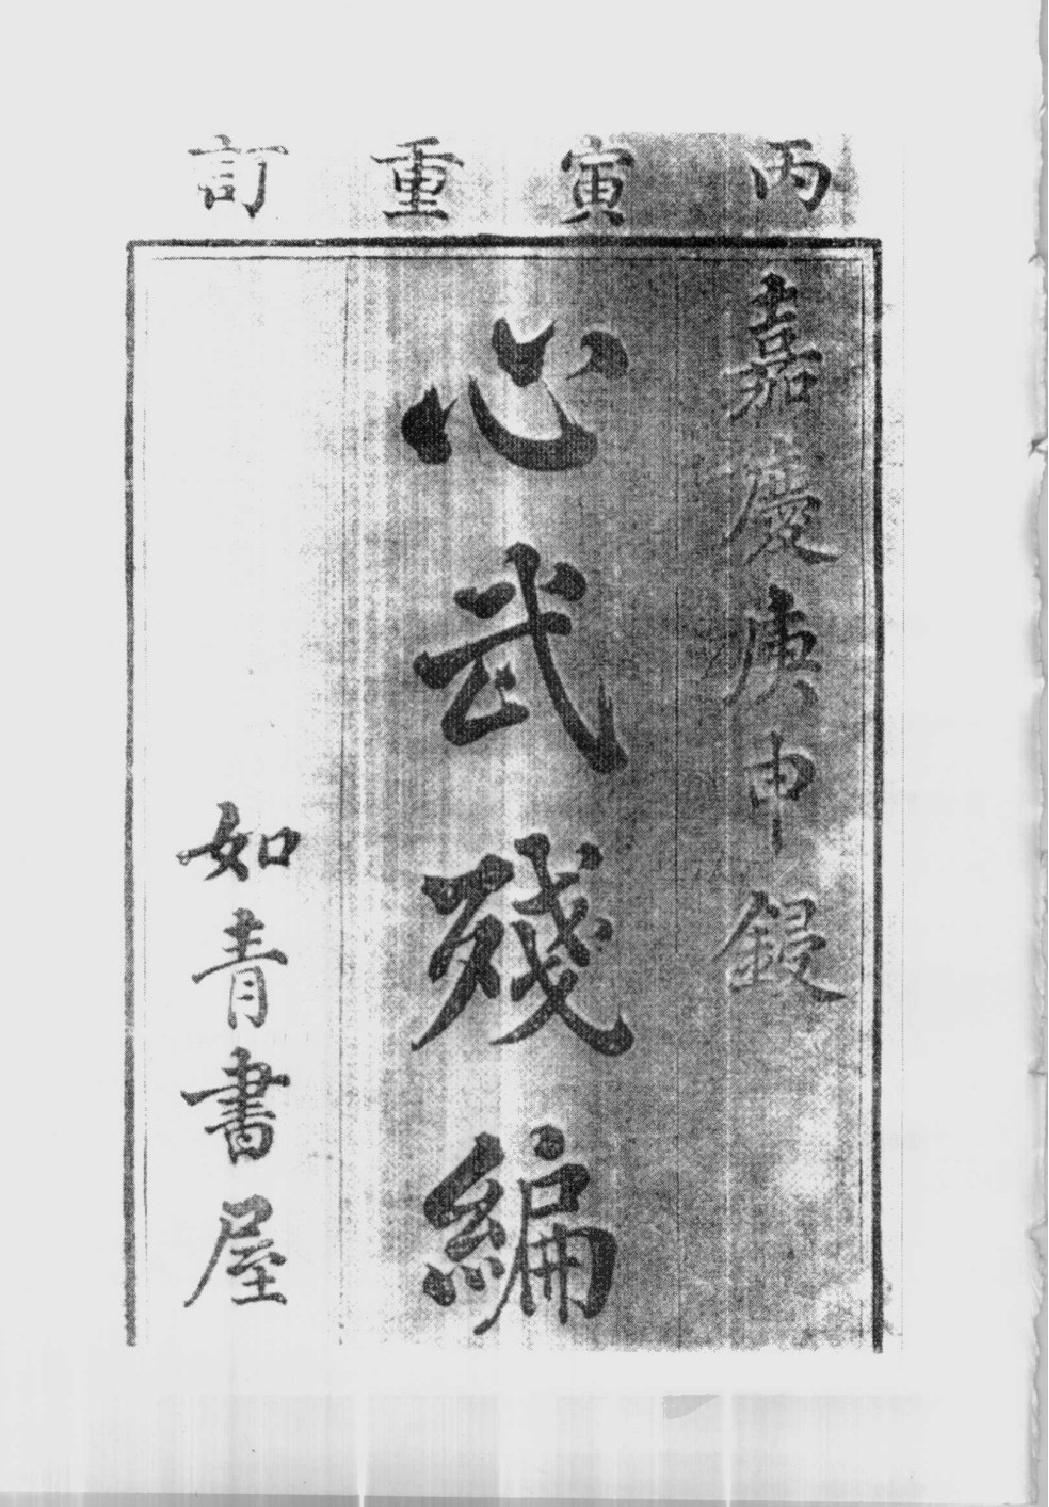 丙寅重訂
嘉慶庚申鋟
心武殘編
如青書屋